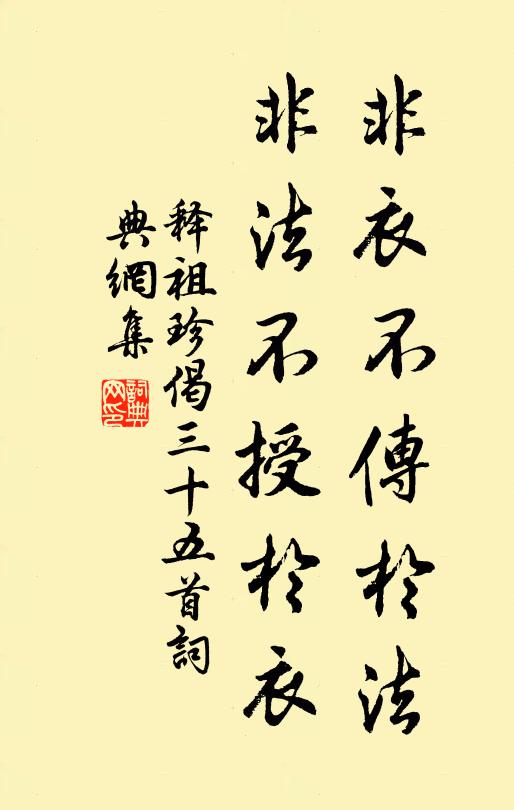 非衣不傳於法
非法不授於衣
释祖珍偈三十五首詞
典網集
詞典
网印